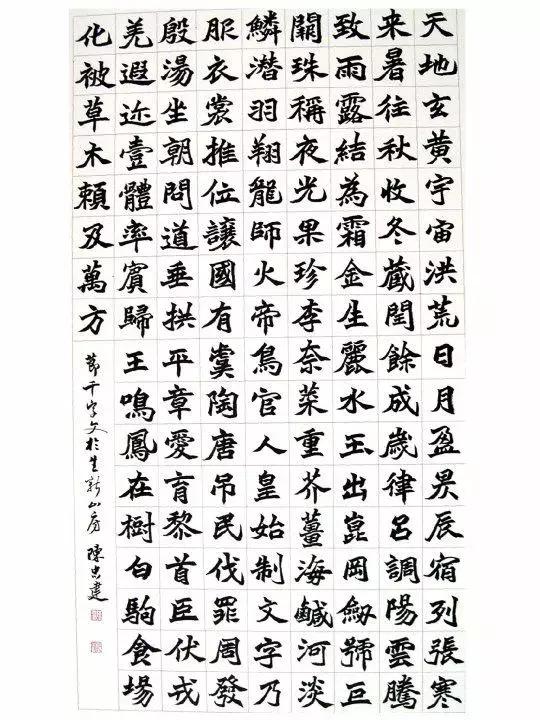 天地玄黄宇宙洪荒日月盈昃辰宿列張寒
来暑往秋收冬藏閏餘成歲律吕調陽雲騰
致雨露結為霜金生麗水玉出崑岡劒號巨
闕珠稱夜光果珍李柰菜重芥薑海鹹河淡
鱗潜羽翔龍師火帝鳥官人皇始制文字乃
服衣裳推位讓國有虞陶唐吊民伐罪周發
殷湯坐朝問道垂拱平章愛育黎首臣伏戎
羌遐迩壹體率賓歸王鳴鳳在樹白駒食場
化被草木賴及萬方
節千字文於生新山房 陳忠建